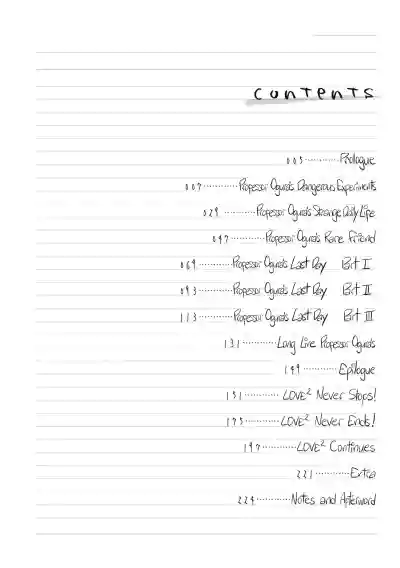 contents
005 ············ Prologue
007 ············ Professor Ogura's Dangerous Experiments
029 ············ Professor Ogura's Strange Daily Life
047 ············ Professor Ogura's Rare Friend
069 ············ Professor Ogura's Last Day Part I
093 ············ Professor Ogura's Last Day Part II
113 ············ Professor Ogura's Last Day Part III
131 ············ Long Live Professor Ogura
149 ············ Epilogue
151 ············ LOVE² Never Stops!
175 ············ LOVE² Never Ends!
197 ············ LOVE² Continues
221 ············ Extra
224 ············ Notes and Afterword